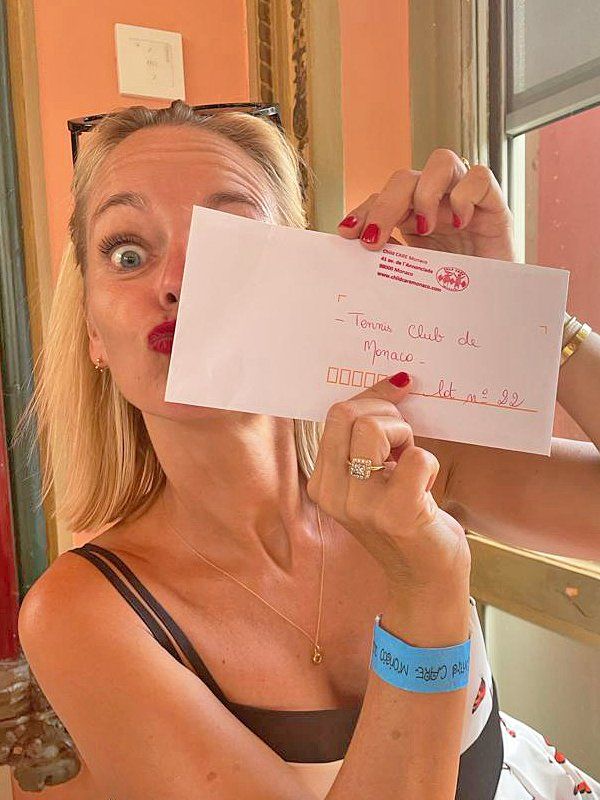 Child CARE Monaco
41 av. de l'Annonciade
98000 Monaco
www.childcaremonaco.com
- Tennis Club de
Monaco -
lot n° 22
CARE. Monaco